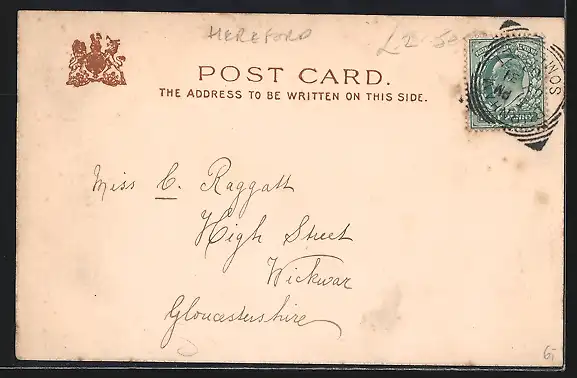 HEREFORD
POST CARD.
THE ADDRESS TO BE WRITTEN ON THIS SIDE.
Miss C. Raggatt
High Street
Wickwar
Gloucestershire
6,-